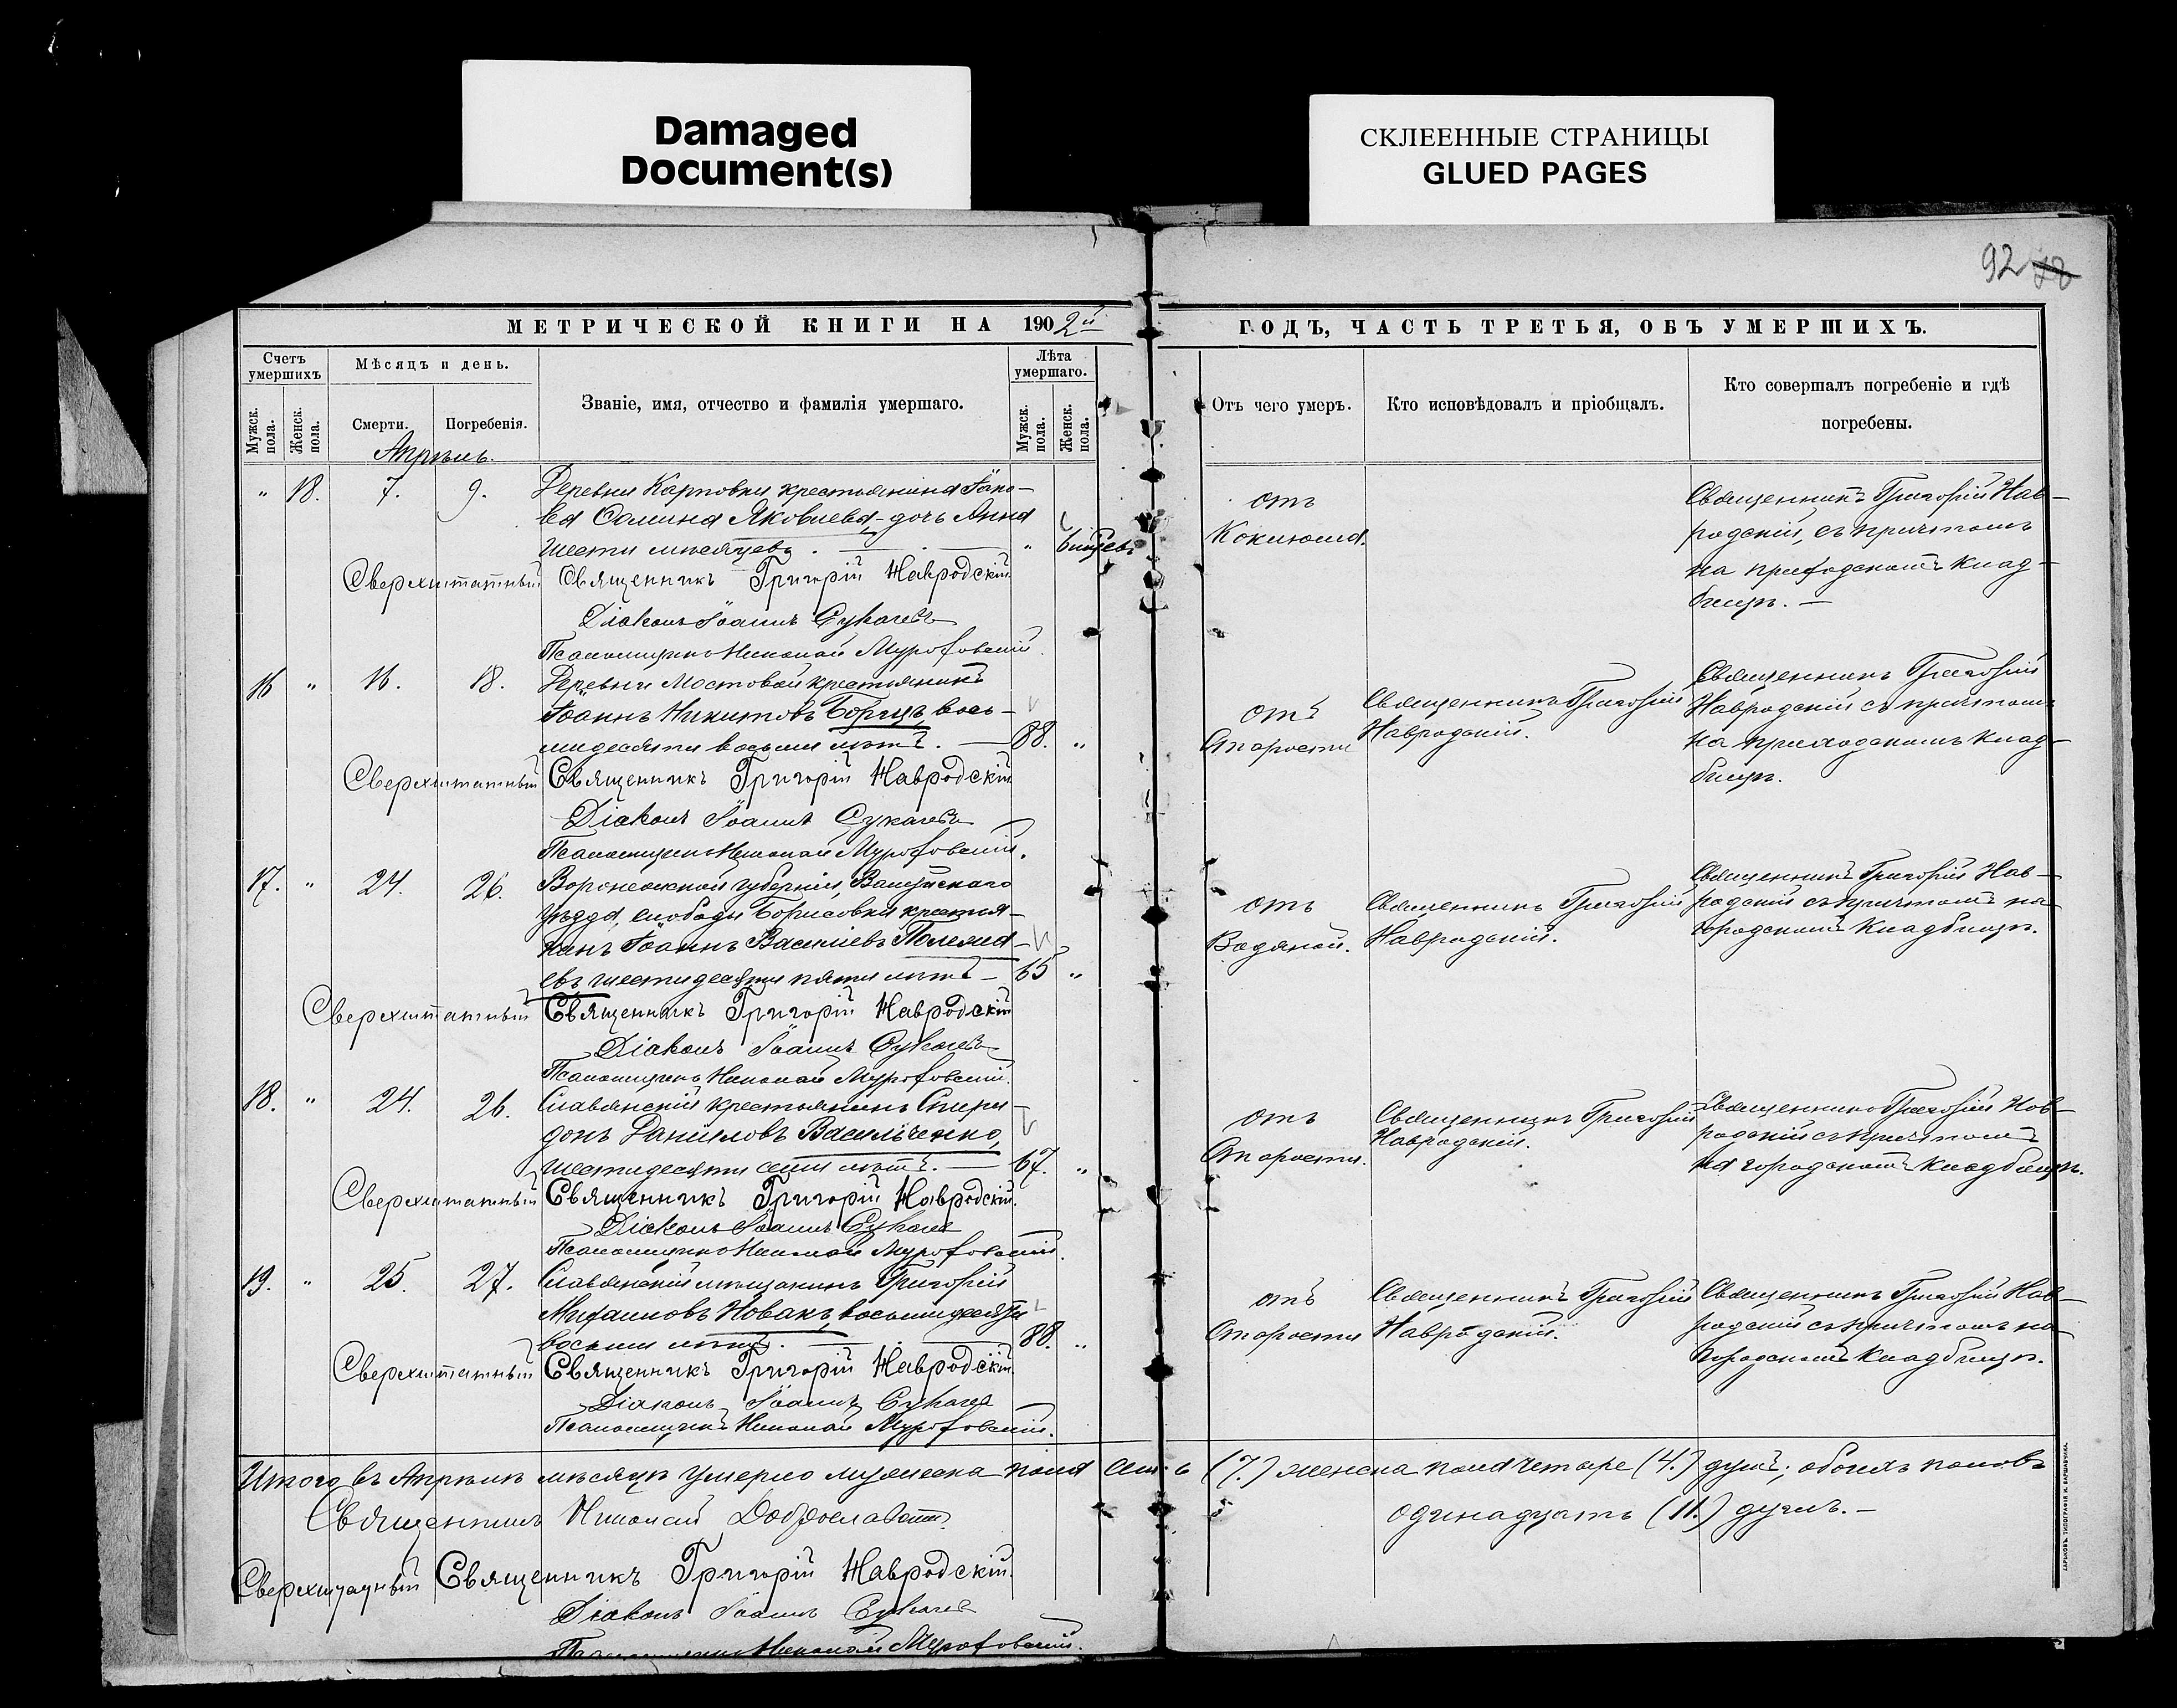 Damaged
Document(s)
СКЛЕЕННЫЕ СТРАНИЦЫ
GLUED PAGES
92
МЕТРИЧЕСКОЙ КНИГИ НА 1902й
ГОДЪ, ЧАСТЬ ТРЕТЬЯ, ОБЪ УМЕРШИХЪ.
Счетъ умершихъ
Мужск. пола.
Женск. пола.
Мѣсяцъ и день.
Смерти.
Погребенія.
Званіе, имя, отчество и фамилія умершаго.
Лѣта умершаго.
Мужск. пола.
Женск. пола.
Отъ чего умеръ.
Кто исповѣдовалъ и пріобщалъ.
Кто совершалъ погребеніе и гдѣ
погребены.
Апрѣль.
" 18. 7. 9. Деревни Карповки крестьянина
Яковлева - дочь Анна
шести мѣсяцевъ . — . — " 6 мѣсцевъ
отъ
Коклюша.
Священникъ Григорій Нав-
родскій, съ причтомъ
на приходскомъ клад-
бищѣ. —
Сверхштатный Священникъ Григорій Навродскій
Діаконъ Іоаннъ Сукачевъ
Псаломщикъ Николай Мурофовскій.
16 " 16. 18. Деревни Мостовой крестьянинъ
Іоаннъ Никитовъ Борецъ, вось-
мидесяти восьми лѣтъ. — 88. "
отъ
Старости
Священникъ Григорій
Навродскій.
Священникъ Григорій
Навродскій съ причтомъ
на приходскомъ клад-
бищѣ.
Сверхштатный Священникъ Григорій Навродскій
Діаконъ Іоаннъ Сукачевъ
Псаломщикъ Николай Мурофовскій.
17. " 24. 26. Воронежской губерніи, Валуйскаго
уѣзда, слободы Борисовки крестья-
нинъ Іоаннъ Василіевъ
евъ, шестидесяти пяти лѣтъ — 65 "
отъ
Водяной.
Священникъ Григорій
Навродскій.
Священникъ Григорій Нав-
родскій съ причтомъ на
городскомъ Кладбищѣ.
Сверхштатный Священникъ Григорій Навродскій
Діаконъ Іоаннъ Сукачевъ
Псаломщикъ Николай Мурофовскій.
18. " 24. 26. Славянскій крестьянинъ Спири-
донъ Даніиловъ Васильченко,
шестидесяти семи лѣтъ. — 67. "
отъ
Старости.
Священникъ Григорій
Навродскій.
Священникъ Григорій Нав-
родскій съ причтомъ
на городскомъ кладбищѣ.
Сверхштатный Священникъ Григорій Навродскій.
Діаконъ Іоаннъ Сукачев
Псаломщикъ Николай Мурофовскій.
19. " 25. 27. Славянскій мѣщанинъ Григорій
Михаиловъ Новакъ, восьмидесяти
восьми лѣтъ. — . — 88. "
отъ
Старости
Священникъ Григорій
Навродскій.
Священникъ Григорій Нав-
родскій съ причтомъ на
Городскомъ Кладбищѣ.
Сверхштатный Священникъ Григорій Навродскій
Діаконъ Іоаннъ Сукачев
Псаломщикъ Николай Мурофовскій.
Итого въ Апрѣлѣ мѣсяцѣ умерло мужеска пола семь (7.) женска пола четыре (4.) душ; обоихъ половъ
одинадцать (11.) душъ. —
Священникъ Николай
Сверхштатный Священникъ Григорій Навродскій.
Діаконъ Іоаннъ Сукачев
Псаломщикъ Николай Мурофовскій.